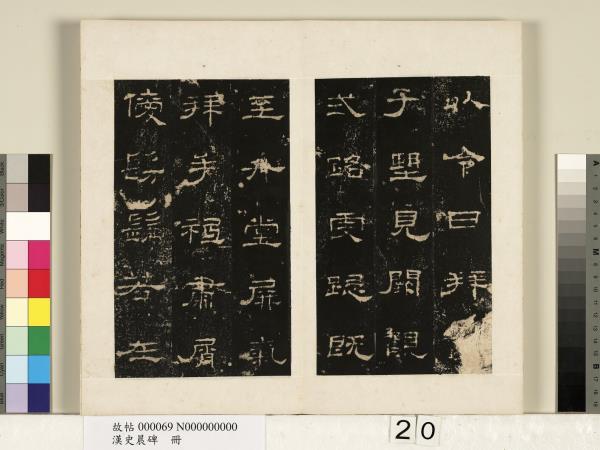 以令日拜
子望見闕觀
式路虔跽既
至升堂屏氣
拜手祗肅屑
僾髣髴若在
故帖 000069 N000000000
漢史晨碑 冊
20